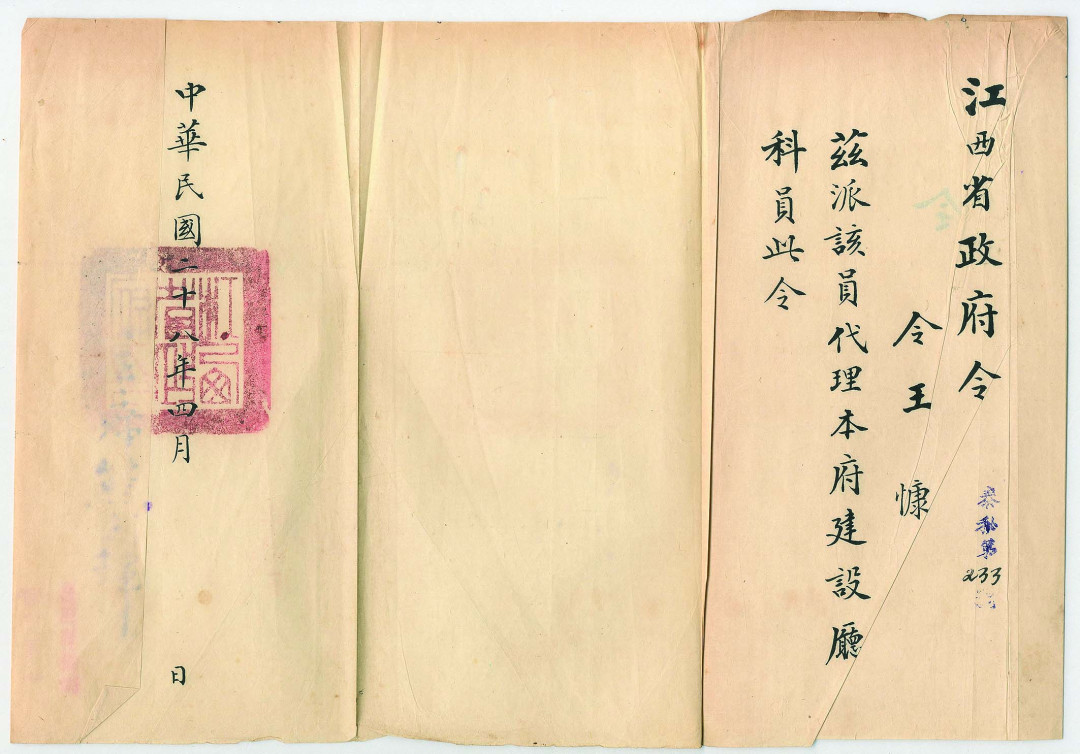 江西省政府令
泰秘第233號
令王慷
茲派該員代理本府建設廳
科員此令
中華民國二十八年四月 日